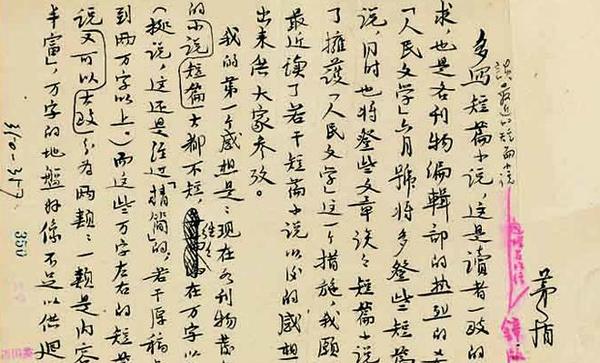 茅盾
谈最近的短篇小说
多写短篇小说,这是读者一致的
求,也是各刊物编辑部的热烈的
「人民文学」六月號将多登些短篇
说,同时也将登些文章谈々短篇小说
了擁護「人民文学」这一个措施,我願
最近读了若干短篇小说以后的感想
出来供大家参攷。
我的第一个感想是:现在各刊物登
的小说短篇大都不短,往々在万字以
(据说,这还是经过「精简」的,若干原稿
到两万字以上。)而这些万字左右的短篇
说又可以大致分为两類:一類是内容
丰富」,万字的地盤好像不足以供迴
310-317
350